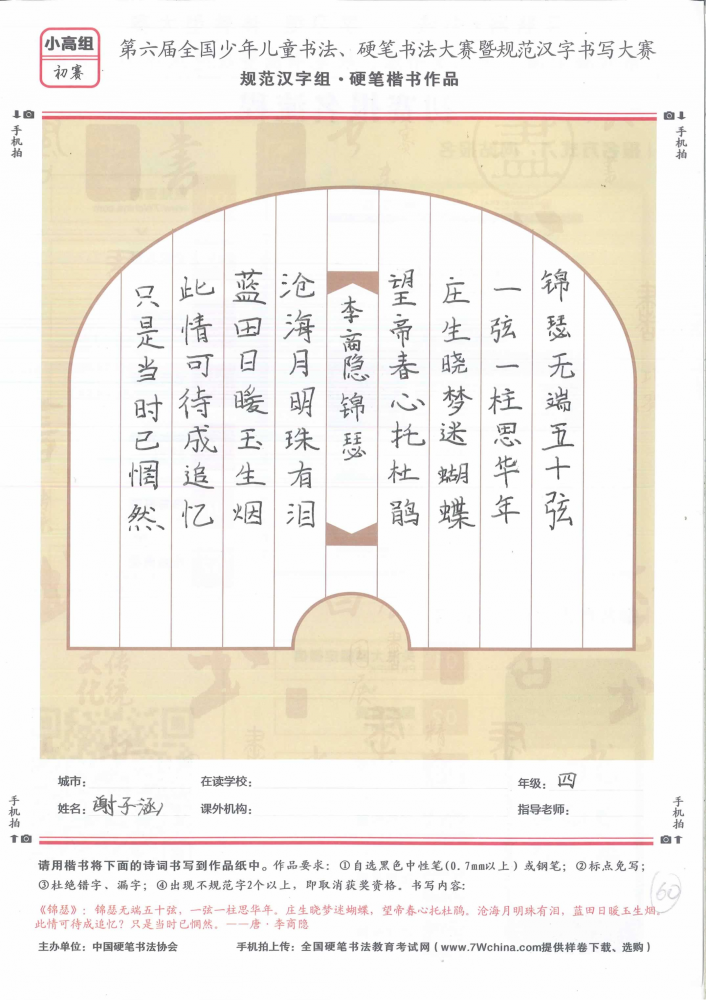 小高组
初赛
第六届全国少年儿童书法、硬笔书法大赛暨规范汉字书写大赛
规范汉字组·硬笔楷书作品
手机拍
手机拍
锦瑟无端五十弦
一弦一柱思华年
庄生晓梦迷蝴蝶
望帝春心托杜鹃
李商隐锦瑟
沧海月明珠有泪
蓝田日暖玉生烟
此情可待成追忆
只是当时已惘然
城市：
在读学校：
年级：四
姓名：谢子涵
课外机构：
指导老师：
手机拍
手机拍
请用楷书将下面的诗词书写到作品纸中。作品要求：①自选黑色中性笔(0.7mm以上）或钢笔；②标点免写；
③杜绝错字、漏字；④出现不规范字2个以上，即取消获奖资格。书写内容：
60
《锦瑟》：锦瑟无端五十弦，一弦一柱思华年。庄生晓梦迷蝴蝶，望帝春心托杜鹃。沧海月明珠有泪，蓝田日暖玉生烟。
此情可待成追忆？只是当时已惘然。——唐·李商隐
主办单位：中国硬笔书法协会
手机拍上传：全国硬笔书法教育考试网（www.7Wchina.com提供样卷下载、选购）